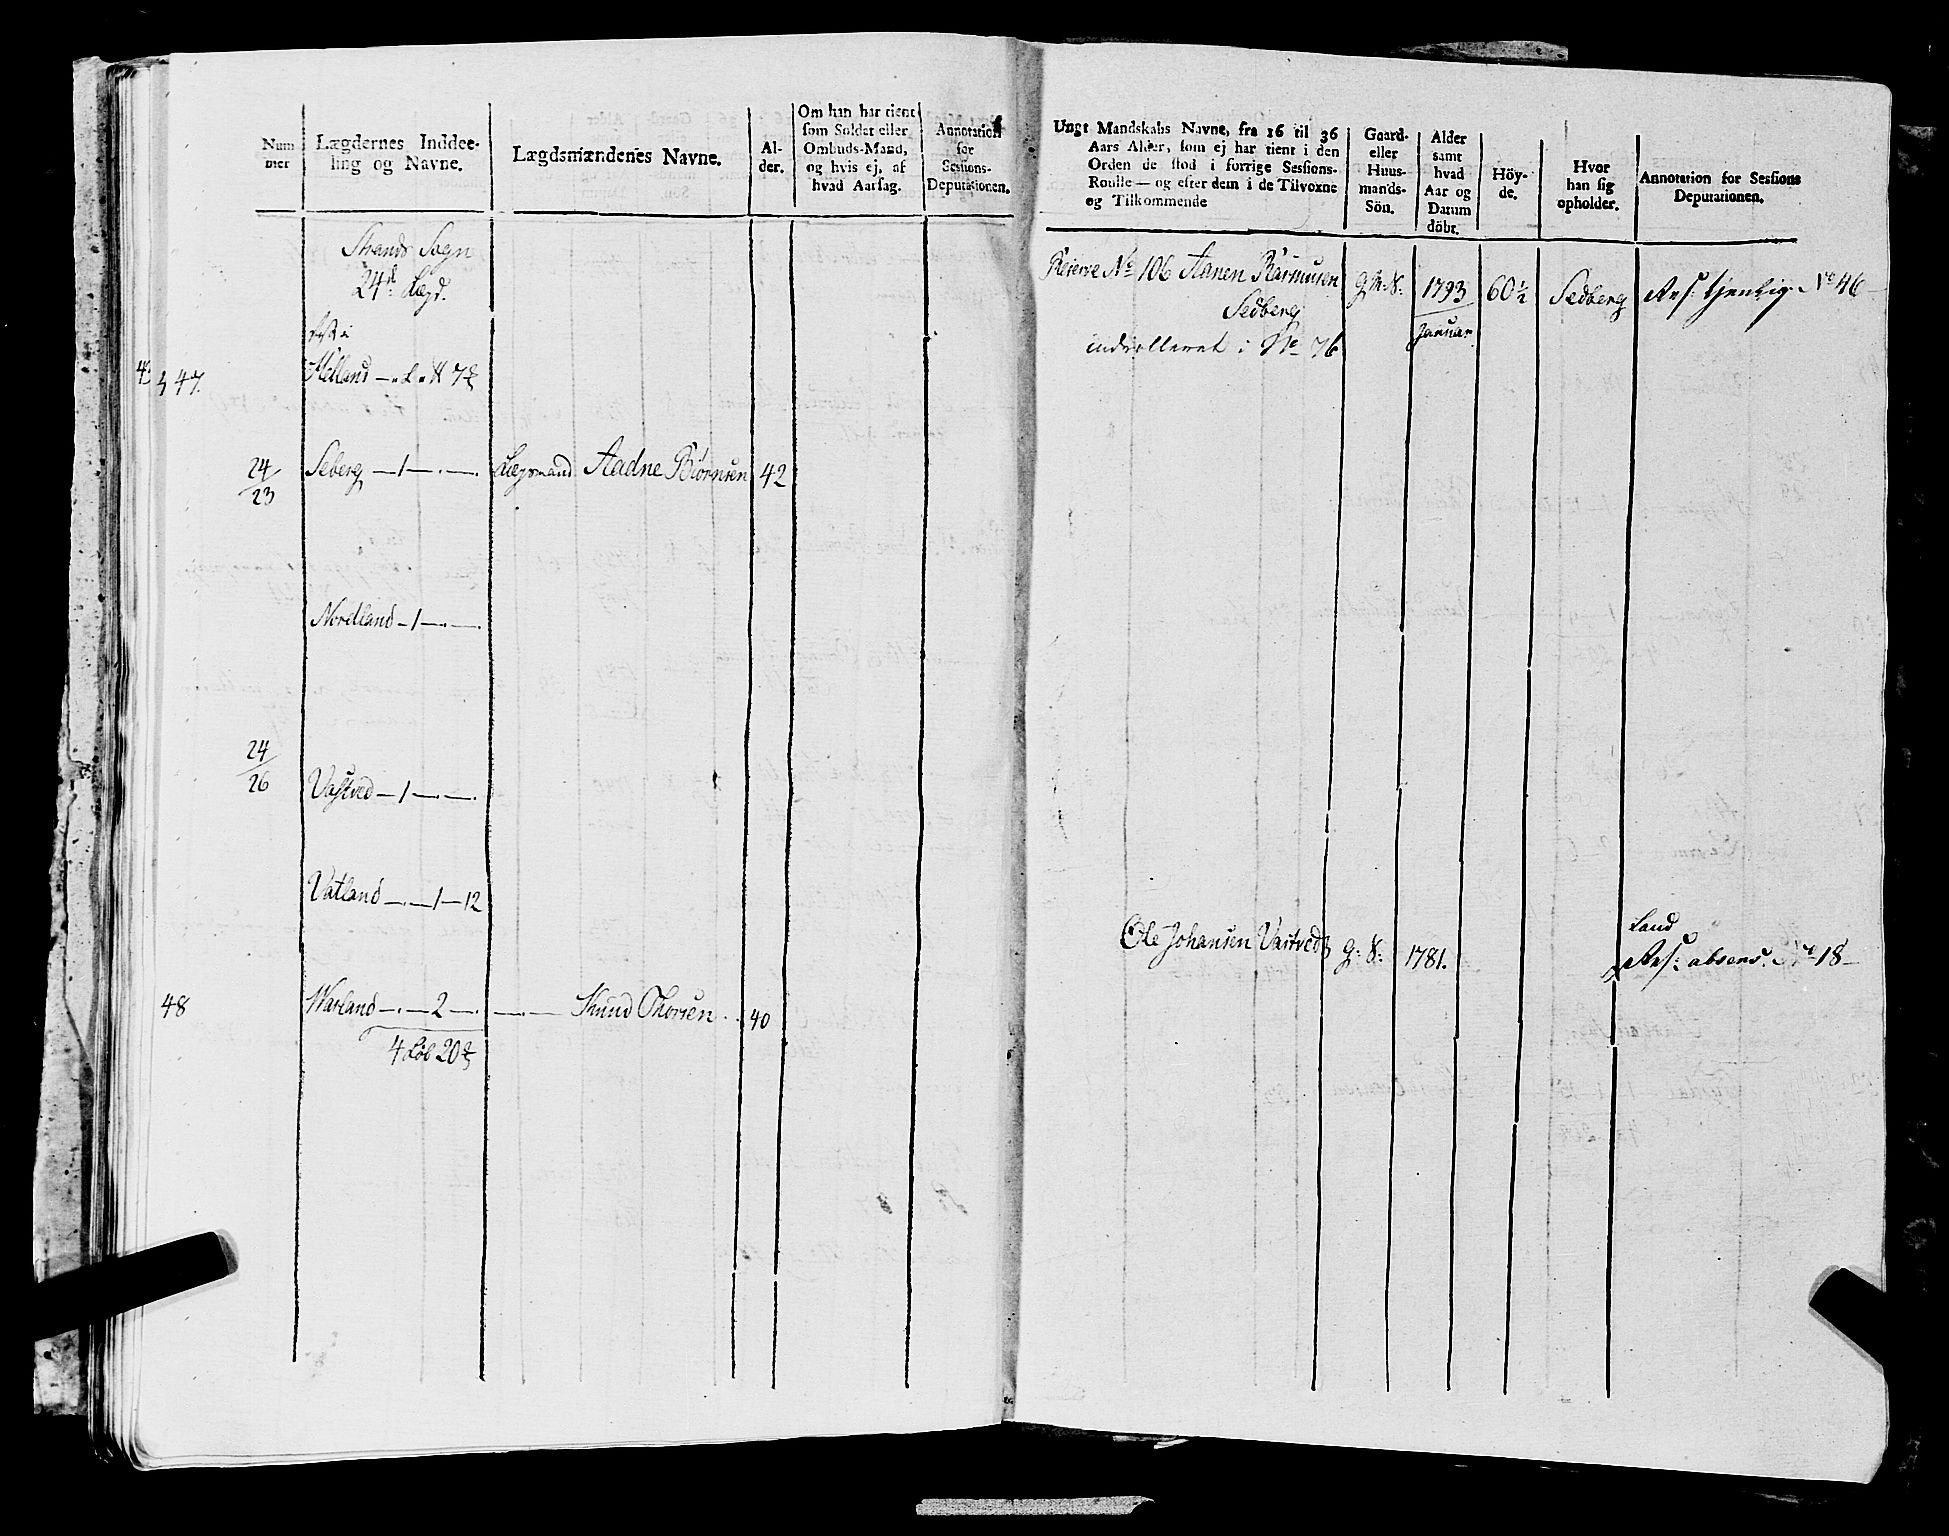 Num
mer
Lægdernes Inddee-
ling og Navne.
Lægdsmændenes Navne.
Al-
der.
Om han har tient
som Soldat eller
Ombuds-Mand,
og hvis ej, af
hvad Aarsag.
Annotation
for
Sessions-
Deputationen.
Strands Sogn
24de Lægd.
47.
Helland
24/23
Seberg — 1 — . —
Lægsmand Aadne Biörnsen 42
Nordland — 1 — . —
24/26
Vastved — 1 — . —
Vatland — . — 1 — 12
48
Warland — . — 2 — . — Knud Thorsen . . 40
4 Löb 20
Ungt Mandskabs Navne, fra 16 til 36
Aars Alder, som ej har tient i den
Orden de stod i forrige Sessions-
Roulle — og efter dem i de Tilvoxne
og Tilkommende
Gaard-
eller
Huus-
mands-
Sön.
Alder
samt
hvad
Aar og
Datum
döbt.
Höy-
de.
Hvor
han sig
opholder.
Annotation for Sessions
Deputationen.
Reserve No 106 Aanen Rasmusen 1793 60½ Sedberg Res: tjenlig No 46
Sedberg
Januar.
indrolleret i No 76
Land
Ole Johansen Vastved G: S: 1781. Res: absend. No 18